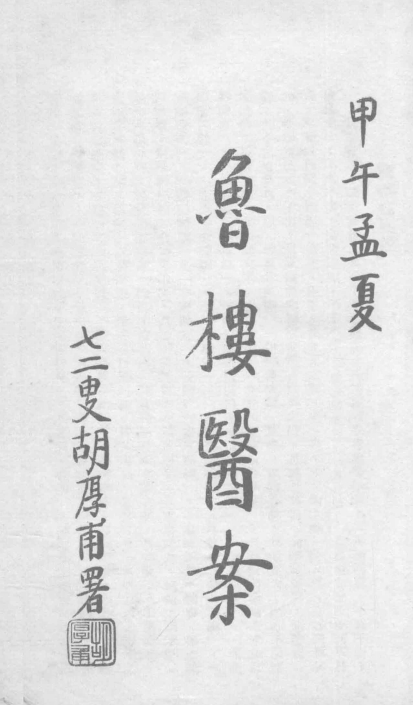 甲午孟夏
魯樓醫案
七二叟胡厚甫署
胡厚甫